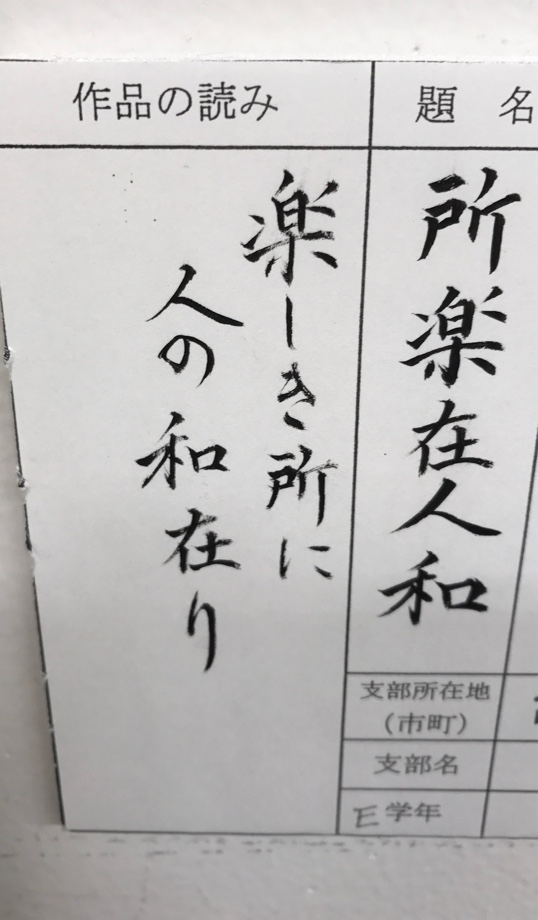 題 名
所楽在人和
作品の読み
楽しき所に
人の和在り
支部所在地
(市町)
支部名
E学年